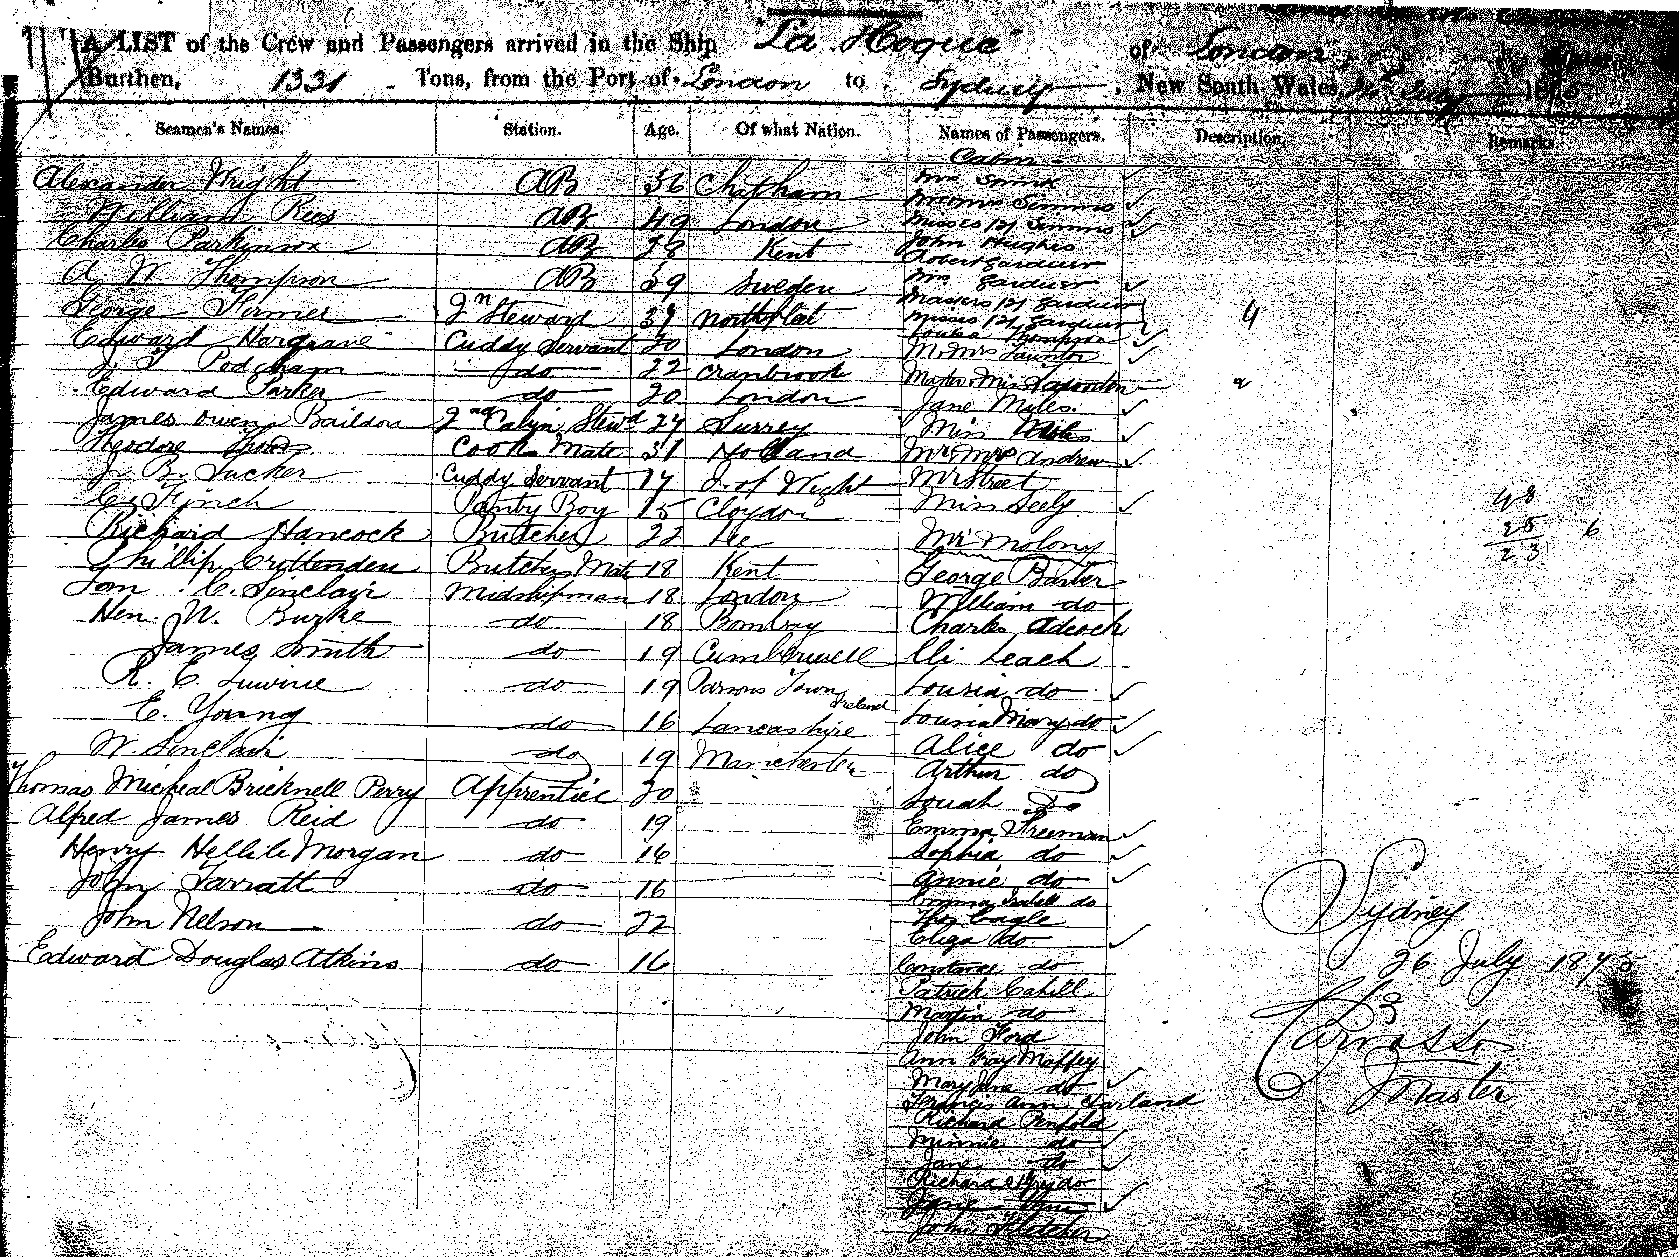 A LIST of the Crew and Passengers arrived in the Ship "La Hogue" of London,
Burthen, 1331 Tons, from the Port of London to Sydney, New South Wales,
Seamen's Names. Station. Age. Of what Nation. Names of Passengers. Description. Remarks.
Cabin
Alexander Wright AB 36 Chipham
Mrs
William Rees AB 49 London
Mr & Mrs Simms
Misses (2) Simms
Charles Parkinson AB 28 Kent
John Hughes
Robert Gardiner
A W Thompson AB 39 Sweden
Mrs Gardiner
Masters (2) Gardiner
George Fermer 2n Steward 37 Northfleet
Misses (2) Gardiner 4
Louisa Thompson
Edward Hargrave Cuddy Servant 20 London
Mr & Mrs Taunton
J. Podgham do 22 Cranbrook
Master & Miss Taunton 2
Edward Parker do 20 London
Jane Miles
James Owen Baildon 2nd Cabin Stewd 27 Surrey
Miss Miles
Theodore Cooks Mate 31 Holland
Mr & Mrs Andrew
J. B. Tucker Cuddy Servant 17 I. of Wight
Mr Street
C. Kynch Pantry Boy 15 Croydon
Miss Seely
48
25 6
23
Richard Hancock Butcher 22 Lee
Mr Molony
Phillip Crittenden Butchers Mate 18 Kent
George Barber
Tom C. Sinclair Midshipman 18 London
William do
Hen. W. Burke do 18 Bombay
Charles Adcock
James Smith do 19 Cumberwell
Eli Leach
R. C. do 19 Parsons Town Ireland
Louisa do
E. Young do 16 Lancashire
Louisa Mary do
W. Sinclair do 19 Manchester
Alice do
Arthur do
Thomas Micheal Bricknell Perry Apprentice 20
Do
Alfred James Reid do 19
Emma Freeman
Henry Hellile Morgan do 16
Sophia do
Annie do
John Jarratt do 16
Emma Isabell do
Thos Cagle
John Nelson do 22
Eliza do
Edward Douglas Atkins do 16
Constance do
Patrick Cahill
Martin do
John Ford
Ann Gray Maffey
Mary Jane do
Francis Ann Garland
Richard Penfold
Minnie do
Jane do
Richard do
John Fletcher
Sydney
26 July 1875
Master